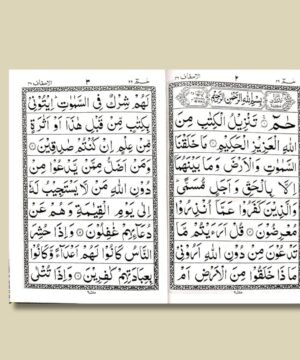 حٰمٓ ٢٦ ٢ الاحقاف ٤٦
بِسْمِ اللهِ الرَّحْمٰنِ الرَّحِيْمِ
حٰمٓ تَنْزِيْلُ الْكِتٰبِ مِنَ
اللهِ الْعَزِيْزِ الْحَكِيْمِ مَا خَلَقْنَا
السَّمٰوٰتِ وَالْاَرْضَ وَمَا بَيْنَهُمَا
اِلَّا بِالْحَقِّ وَاَجَلٍ مُّسَمًّى
وَالَّذِيْنَ كَفَرُوْا عَمَّا اُنْذِرُوْا
مُعْرِضُوْنَ قُلْ اَرَءَيْتُمْ مَّا
تَدْعُوْنَ مِنْ دُوْنِ اللهِ اَرُوْنِيْ
مَاذَا خَلَقُوْا مِنَ الْاَرْضِ اَمْ
حٰمٓ ٢٦ ٣ الاحقاف ٤٦
لَهُمْ شِرْكٌ فِى السَّمٰوٰتِ اِيْتُوْنِيْ
بِكِتٰبٍ مِّنْ قَبْلِ هٰذَا اَوْ اَثٰرَةٍ
مِّنْ عِلْمٍ اِنْ كُنْتُمْ صٰدِقِيْنَ
وَمَنْ اَضَلُّ مِمَّنْ يَّدْعُوْا مِنْ
دُوْنِ اللهِ مَنْ لَّا يَسْتَجِيْبُ لَهٗ
اِلٰى يَوْمِ الْقِيٰمَةِ وَهُمْ عَنْ
دُعَآئِهِمْ غٰفِلُوْنَ وَاِذَا حُشِرَ
النَّاسُ كَانُوْا لَهُمْ اَعْدَآءً وَّكَانُوْا
بِعِبَادَتِهِمْ كٰفِرِيْنَ وَاِذَا تُتْلٰى